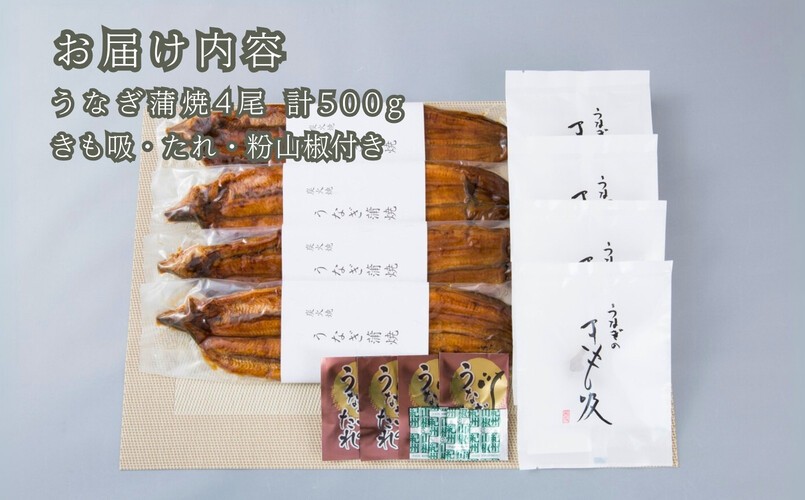 お届け内容
うなぎ蒲焼4尾 計500g
きも吸・たれ・粉山椒付き
蒲焼
炭火焼
うなぎ蒲焼
炭火焼
うなぎ蒲焼
炭火焼
うなぎ蒲焼
うなぎの
うなぎの
うなぎの
うなぎの
きも吸
うなぎ
たれ
うなぎ
たれ
うなぎ
うなぎ